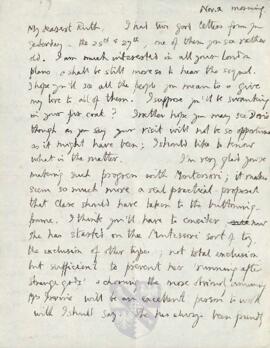 Nov. 2 morning
My dearest Ruth. I had two good letters from you
yesterday – the 25th & 27th, one of them you see rather
old. I am much interested in all your London
plans, & shall be still more so to hear the sequel.
I hope you'll see all the people you mean to & give
my love to all of them. I suppose you'll be swanking
in your fur coat? I rather hope you may see Doris
though as you say your visit will not be so opportune
as it might have been; I should like to know
what is the matter. I'm very glad you're
making such progress with Montessori; it makes
seem so much more a real practical proposal
that Clare should have taken to the buttoning-
frame. I think you'll have to consider now
she has started on the Montessori sort of toy
the exclusion of other types; not total exclusion
but sufficient to prevent her 'running after
strange gods' & choosing the more
Mrs will be an excellent person to
with I should say. She has always been